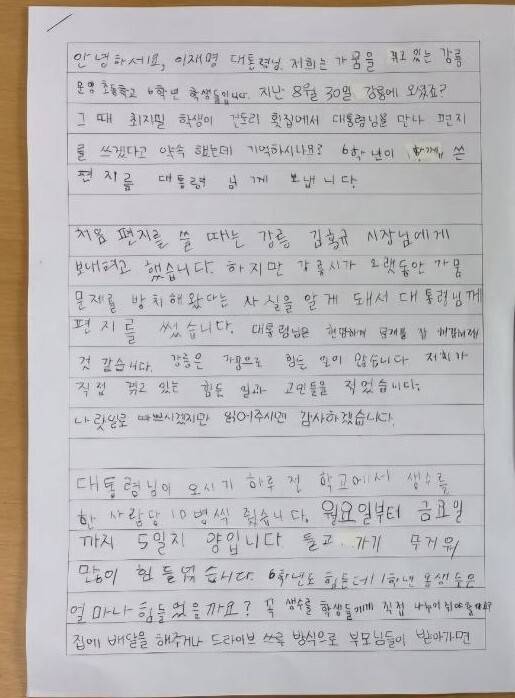 안녕하세요, 이재명 대통령님. 저희는 가뭄을 겪고 있는 강릉
운양초등학교 6학년 학생들입니다. 지난 8월 30일 강릉에 오셨죠?
그 때 최지밀 학생이 건도리 횟집에서 대통령님을 만나 편지
를 쓰겠다고 약속 했는데 기억하시나요? 6학년이 함께 쓴
편지를 대통령 님께 보냅니다.
처음 편지를 쓸 때는 강릉 김홍규 시장님에게
보내려고 했습니다. 하지만 강릉시가 오랫동안 가뭄
문제를 방치해왔다는 사실을 알게 돼서 대통령님께
편지를 썼습니다. 대통령님은 현명하게 문제를 잘 해결해줄
것 같습니다. 강릉은 가뭄으로 힘든 일이 많습니다 저희가
직접 겪고 있는 힘든 일과 고민들을 적었습니다.
나랏일로 바쁘시겠지만 읽어주시면 감사하겠습니다.
대통령님이 오시기 하루 전 학교에서 생수를
한 사람당 10병씩 줬습니다. 월요일부터 금요일
까지 5일치 양입니다. 들고 가기 무거워
많이 힘들었습니다. 6학년도 힘든데 1학년 동생들은
얼마나 힘들었을까요? 꼭 생수를 학생들에게 직접 나눠줘야 할까요?
집에 배달을 해주거나 드라이브 쓰루 방식으로 부모님들이 받아가면